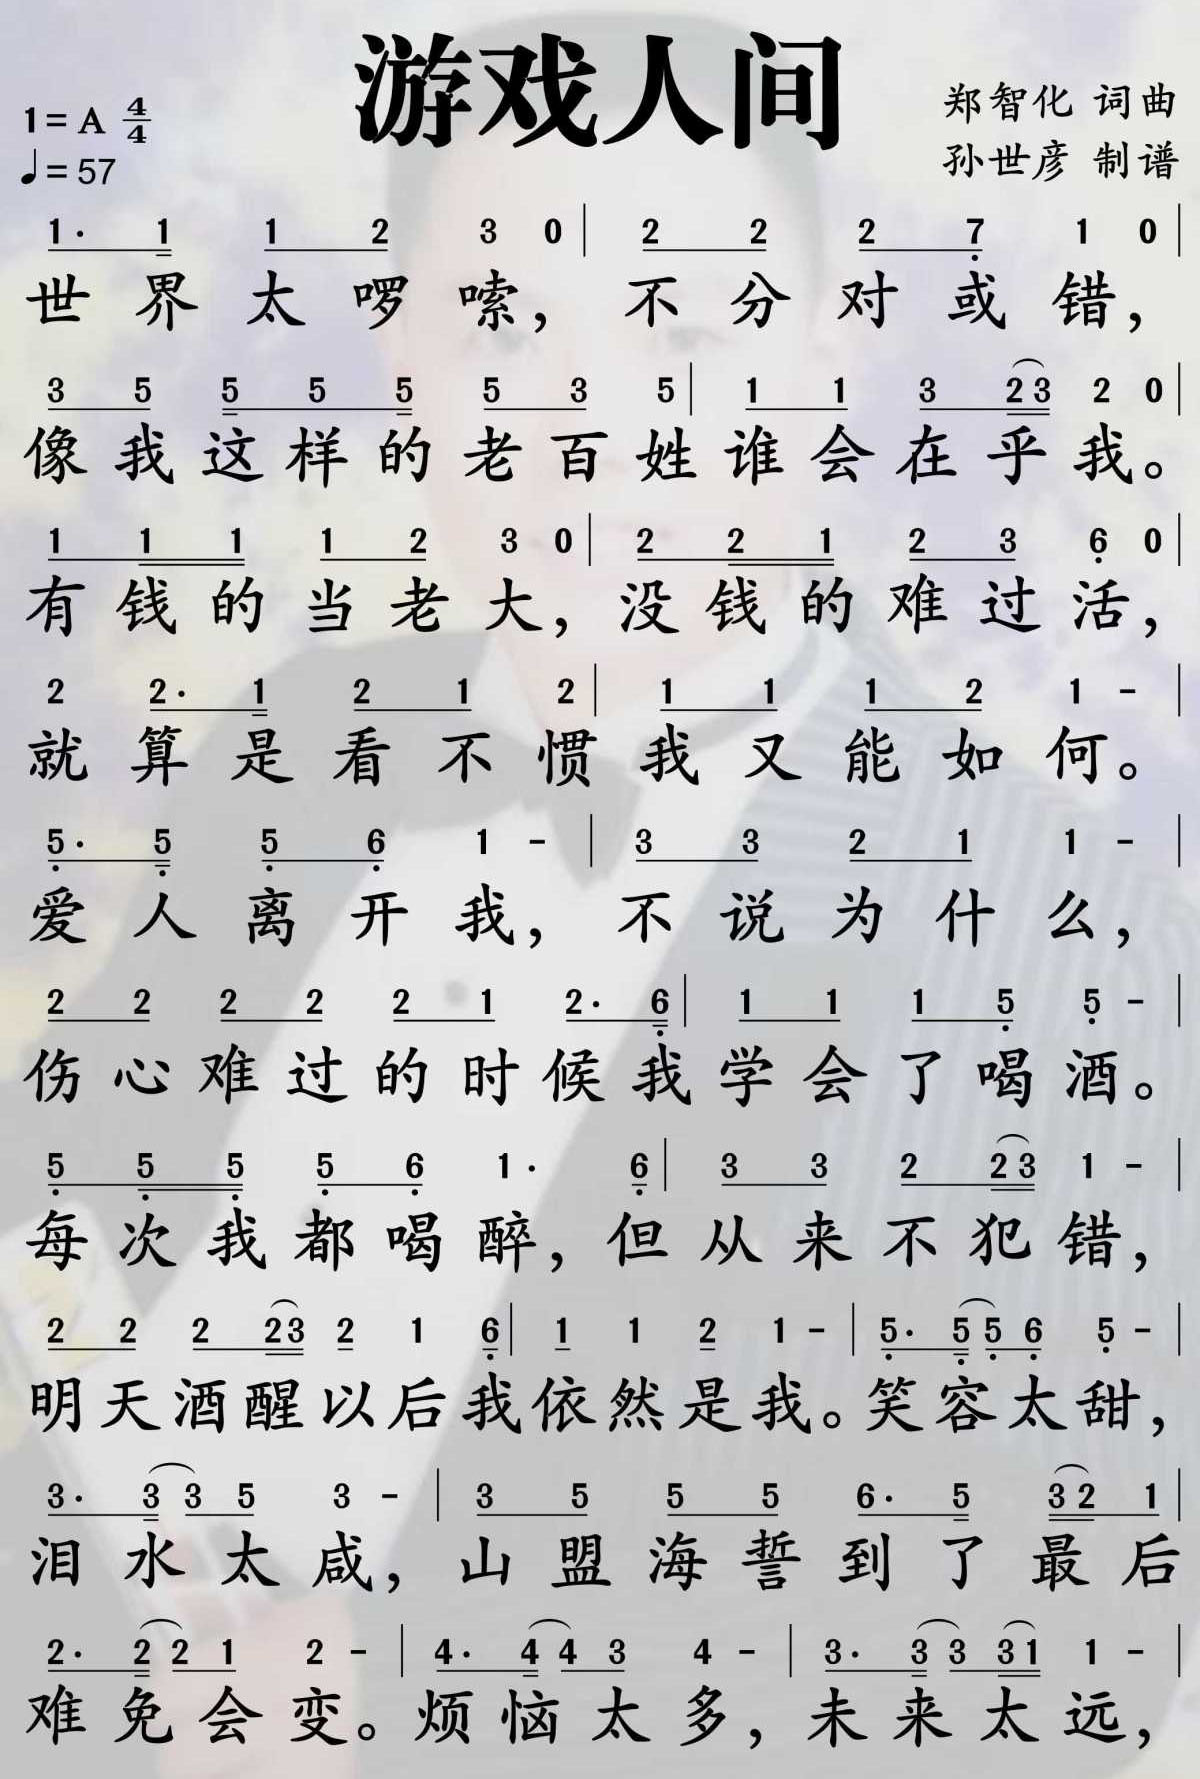 游戏人间
1=A 4/4
♩=57
郑智化 词曲
孙世彦 制谱
1· 1 1 2 3 0 | 2 2 2 7 1 0 |
世界太啰嗦，不分对或错，
3 5 5 5 5 5 3 5 | 1 1 3 2 3 2 0 |
像我这样的老百姓谁会在乎我。
1 1 1 1 2 3 0 | 2 2 1 2 3 6 0 |
有钱的当老大，没钱的难过活，
2 2· 1 2 1 2 | 1 1 1 2 1 - |
就算是看不惯我又能如何。
5· 5 5 6 1 - | 3 3 2 1 1 - |
爱人离开我，不说为什么，
2 2 2 2 2 1 2· 6 | 1 1 1 5 5 - |
伤心难过的时候我学会了喝酒。
5 5 5 5 6 1· 6 | 3 3 2 2 3 1 - |
每次我都喝醉，但从来不犯错，
2 2 2 2 3 2 1 6 | 1 1 2 1 - | 5· 5 5 6 5 - |
明天酒醒以后我依然是我。笑容太甜，
3· 3 3 5 3 - | 3 5 5 5 6· 5 3 2 1 |
泪水太咸，山盟海誓到了最后
2· 2 2 1 2 - | 4· 4 4 3 4 - | 3· 3 3 3 1 1 - |
难免会变。烦恼太多，未来太远，